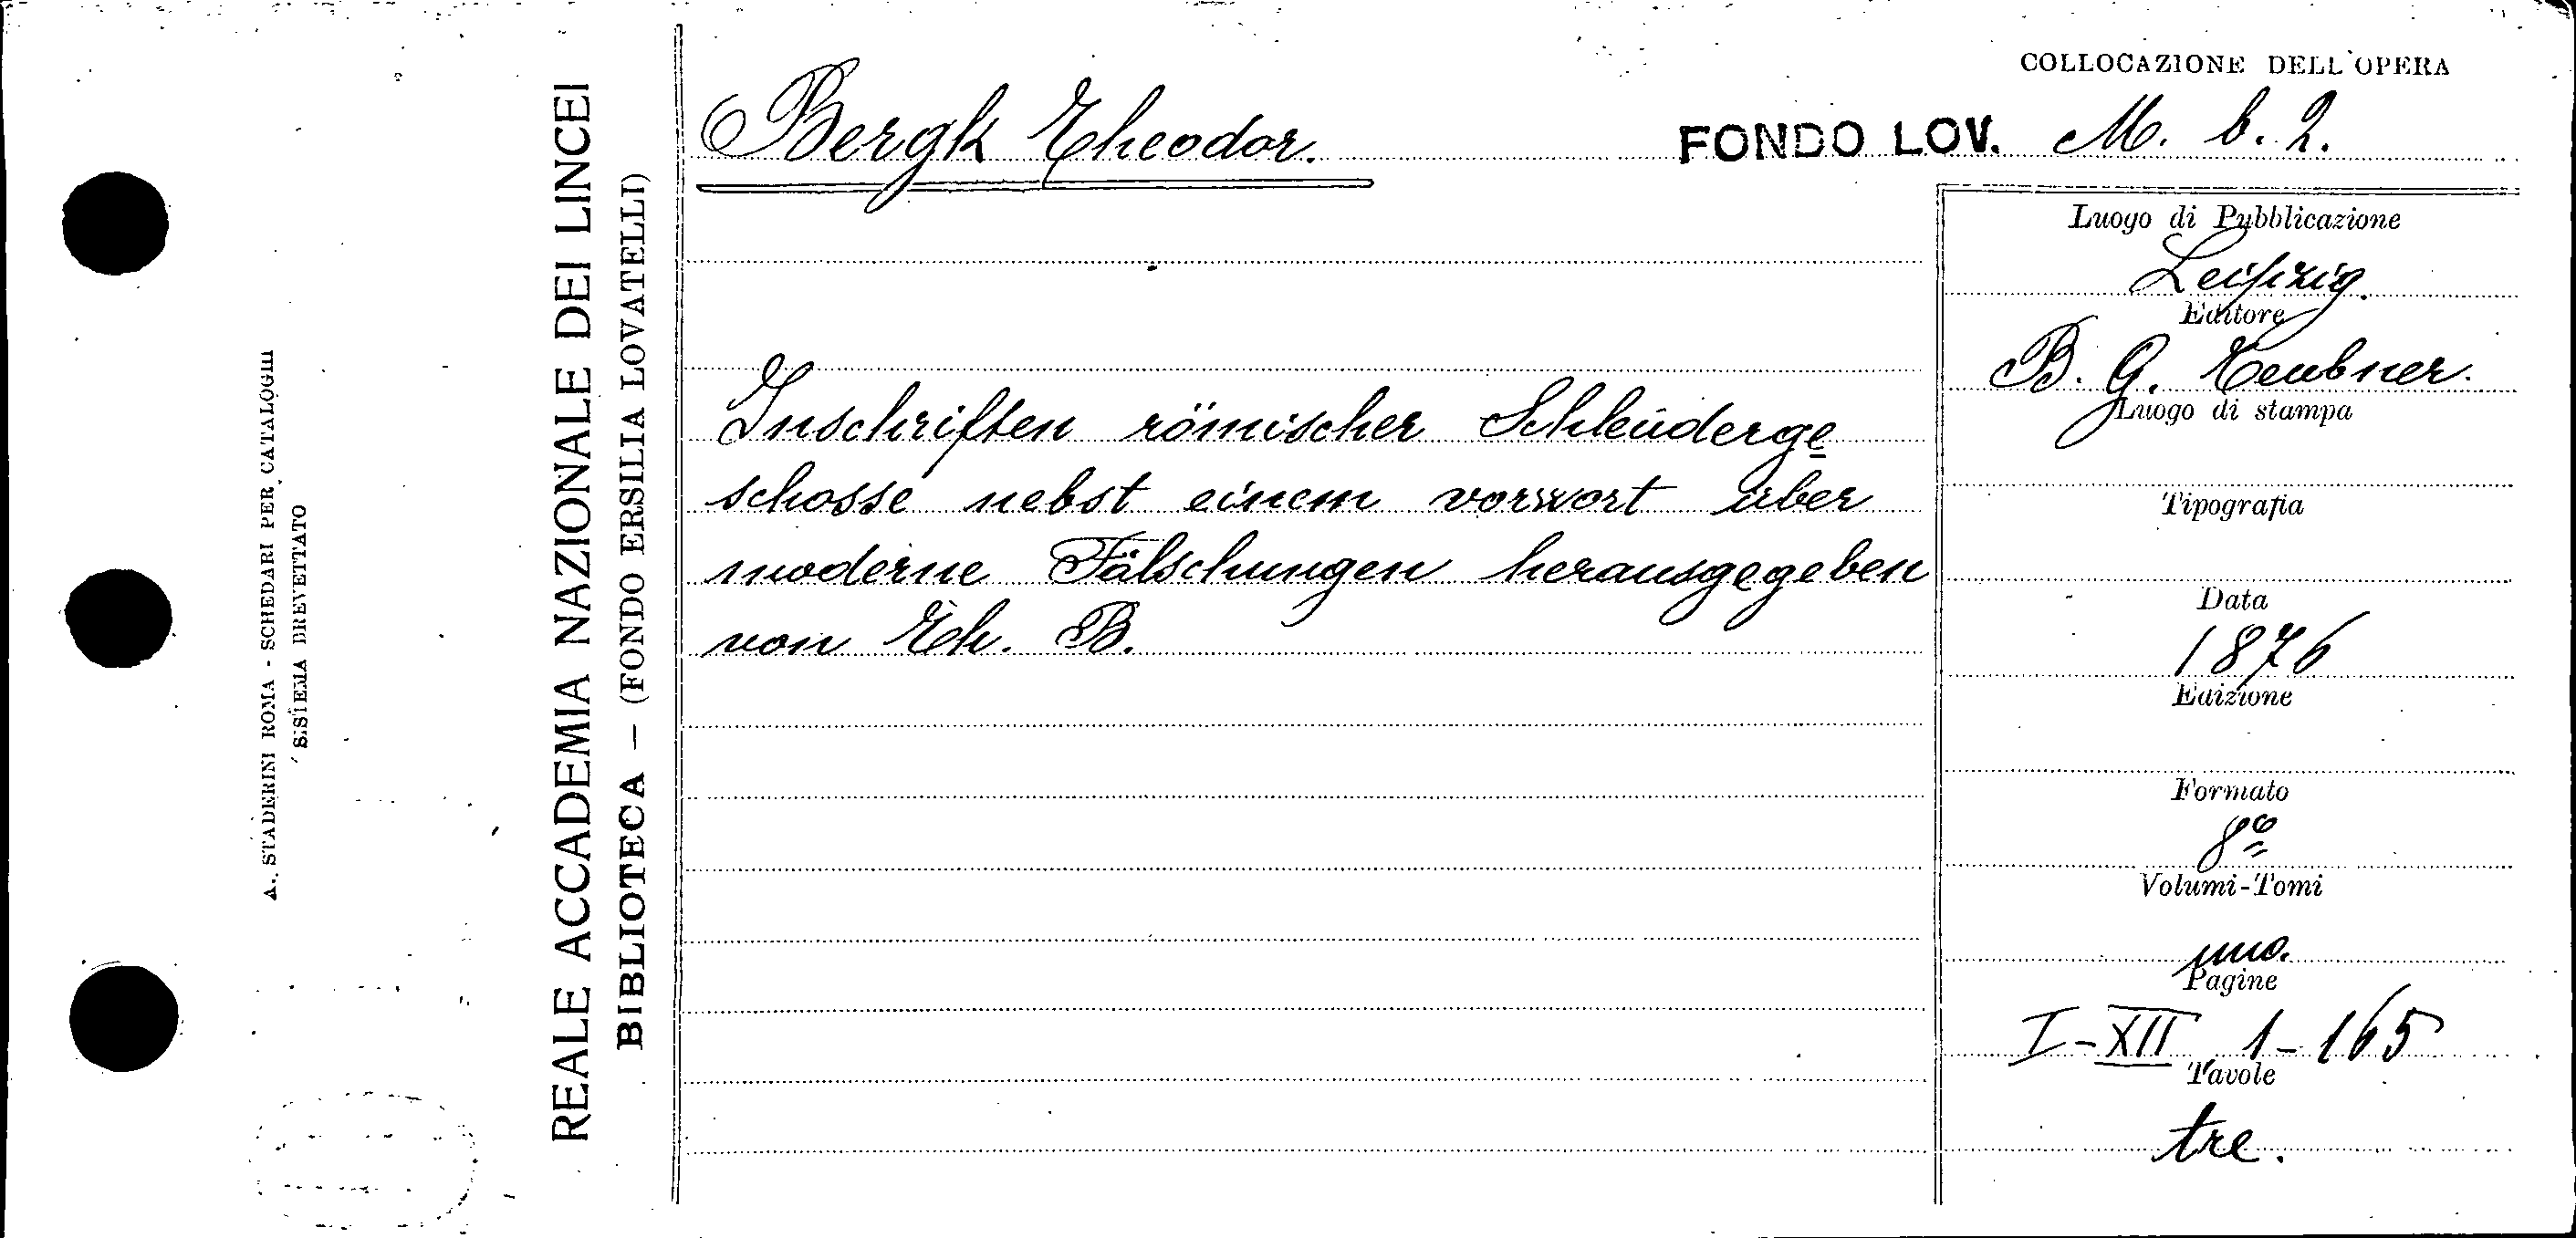 COLLOCAZIONE DELL'OPERA
Bergk Theodor.
FONDO LOV. M. b. 2.
Inschriften römischer Schleuderge
schosse nebst einem vorwort über
moderne Fälschungen herausgegeben
von Th. B.
Luogo di Pubblicazione
Leipzig.
Editore
B. G. Teubner.
Luogo di stampa
Tipografia
Data
1876
Edizione
Formato
8º
Volumi-Tomi
uno.
Pagine
I-XII 1-165
Tavole
tre.
REALE ACCADEMIA NAZIONALE DEI LINCEI
BIBLIOTECA — (FONDO ERSILIA LOVATELLI)
A. STADERINI ROMA - SCHEDARI PER CATALOGHI
SISTEMA BREVETTATO